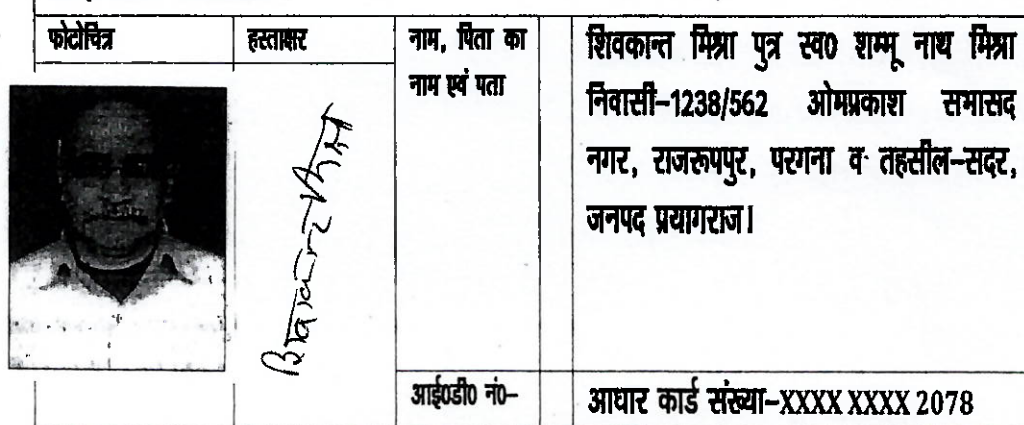 फोटोचित्र
हस्ताक्षर
नाम, पिता का
नाम एवं पता
शिवकान्त मिश्रा पुत्र स्व0 शम्भू नाथ मिश्रा
निवासी-1238/562 ओमप्रकाश सभासद
नगर, राजरूपपुर, परगना व तहसील-सदर,
जनपद प्रयागराज।
आई0डी0 नं0-
आधार कार्ड संख्या-XXXX XXXX 2078